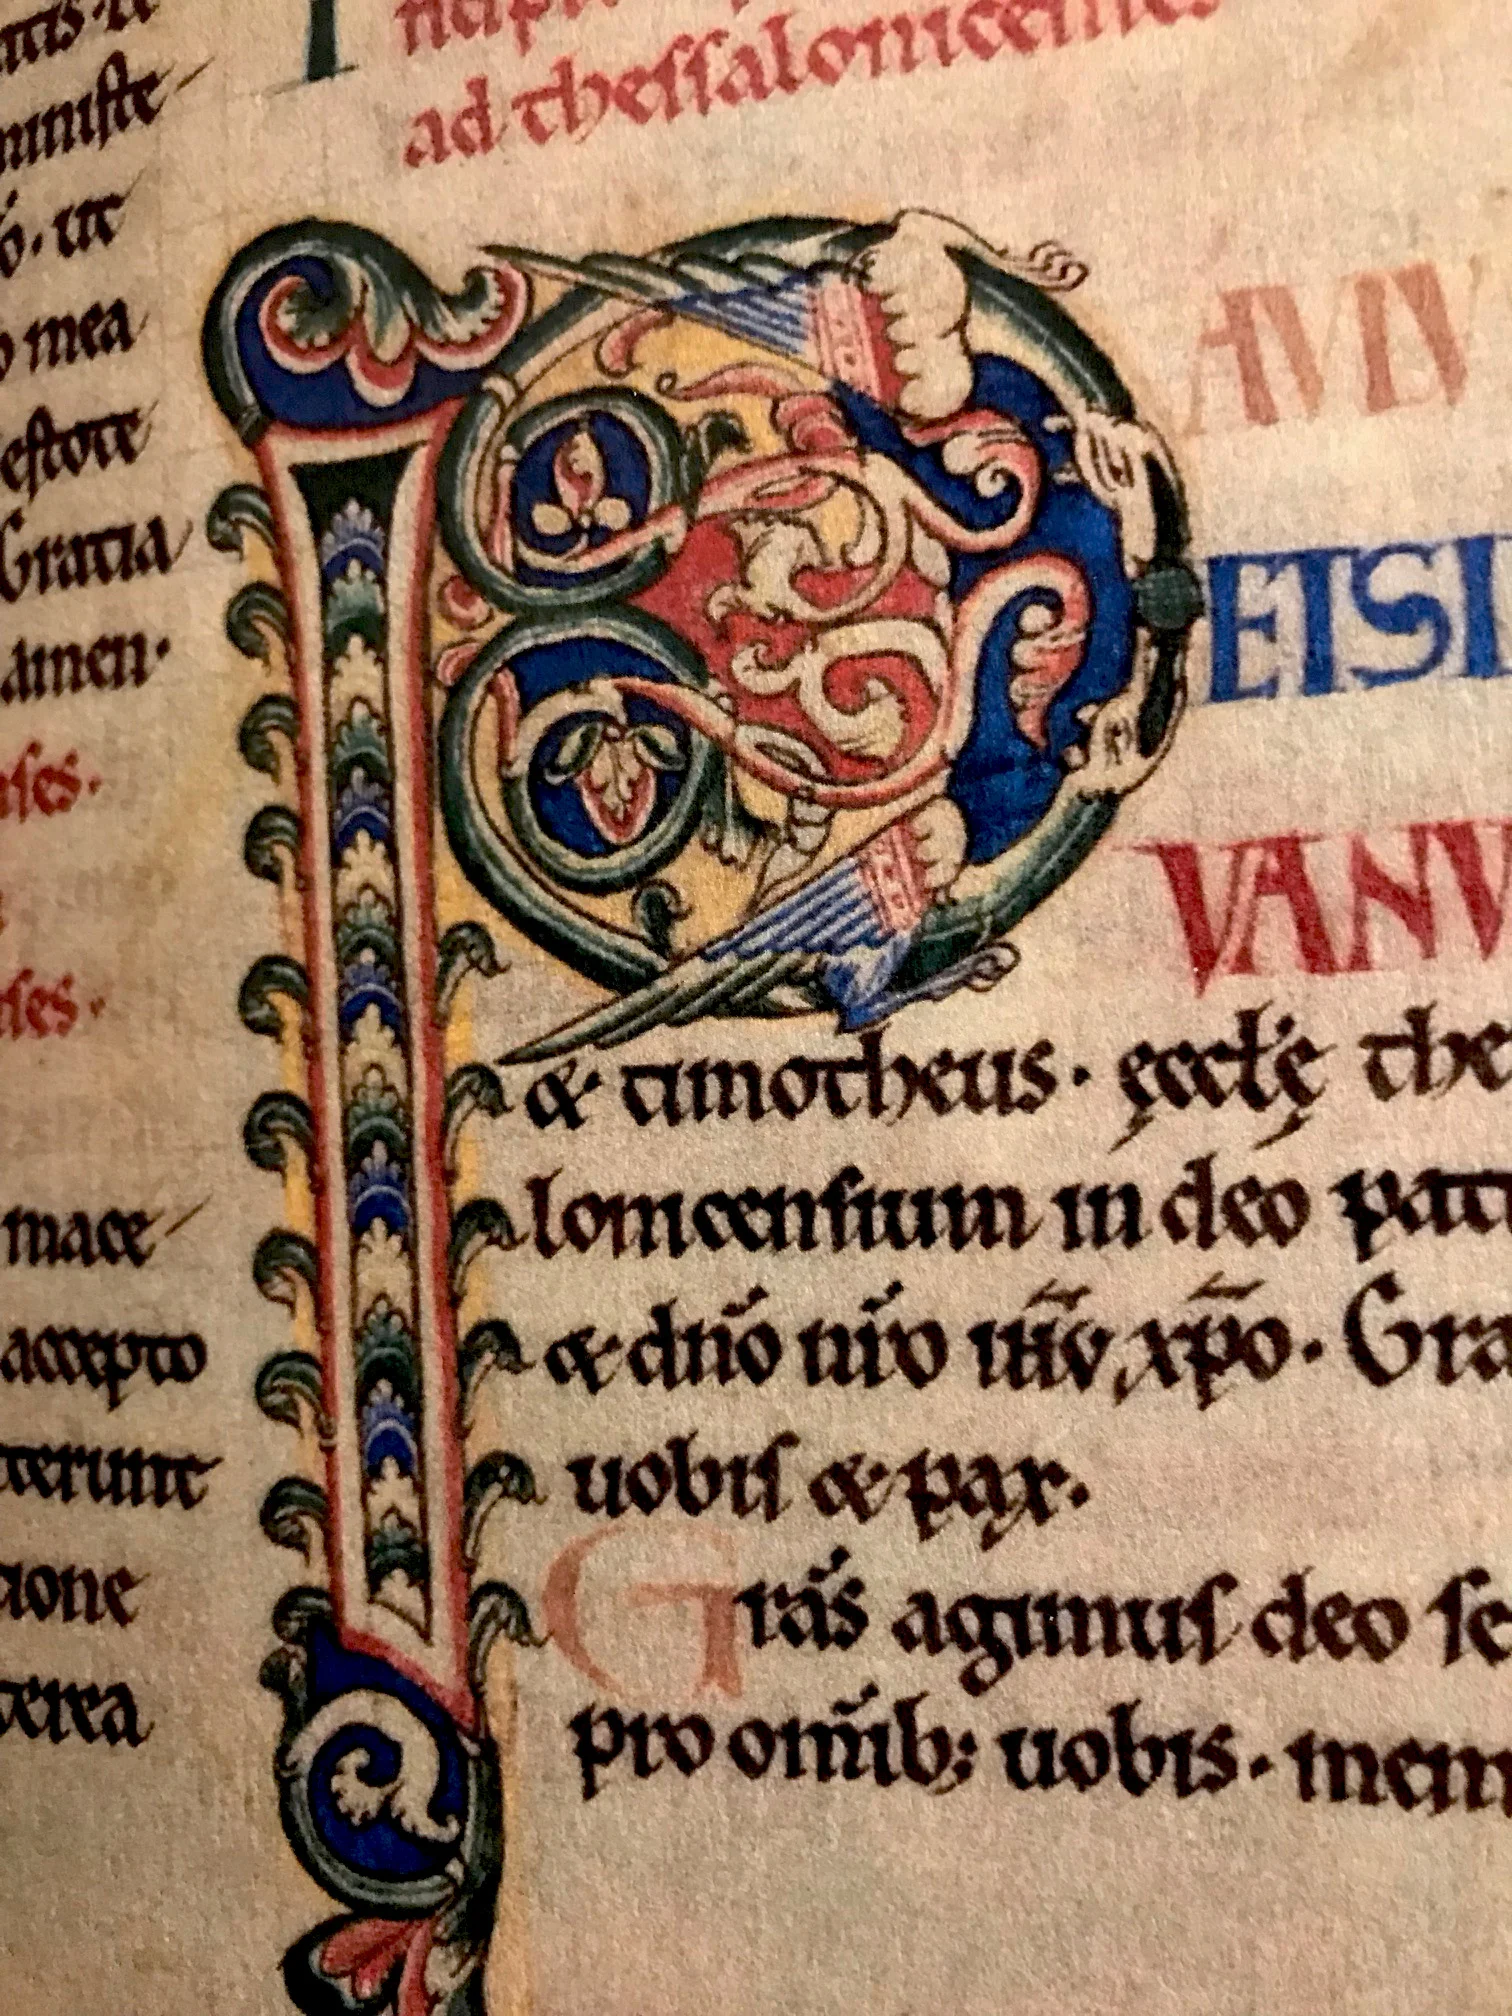 ministe
ut
mea
estote
Gratia
amen.
mace
accepto
terunt
cione
terea
ad thessalonicenses
P
AULU
ET SI
VANU
& timotheus. ęccłę the
lonicensium in deo pat
& dño nr̃o ihũ xp̃o. Gra
uobis & pax.
Gras̃ agimus deo se
pro omib; uobis. mem